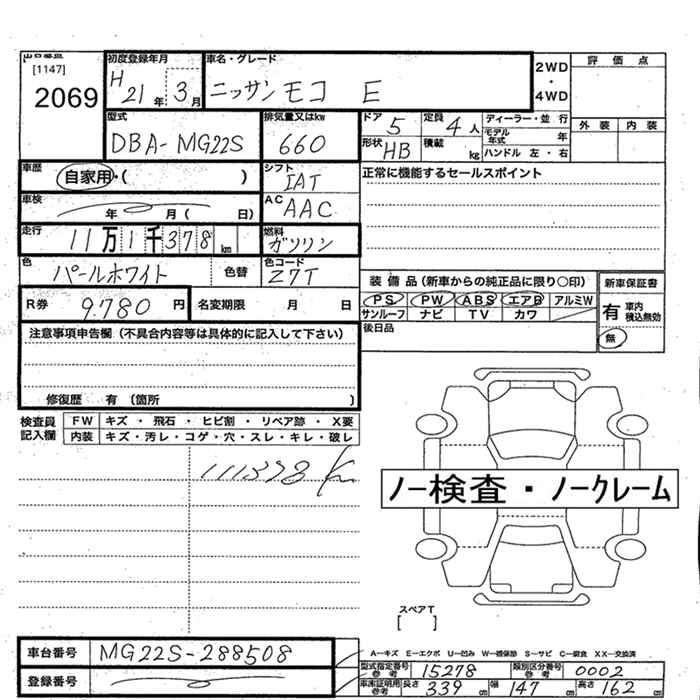 出品番号
[1147]
2069
初度登録年月
H 21 年 3 月
車名・グレード
ニッサン モコ E
2WD
・
4WD
評価点
外装 内装
型式
DBA-MG22S
排気量又はkw
660
ドア 5
定員 4 人
形状 HB
積載 kg
ディーラー・並行
モデル年式 年
ハンドル 左・右
車歴
自家用・( )
シフト
IAT
正常に機能するセールスポイント
車検
年 月( 日)
AC
AAC
走行
11万1千378km
燃料
ガソリン
色
パールホワイト
色替
色コード
Z7T
R券
9.780 円
名変期限 月 日
装備品(新車からの純正品に限り○印)
新車保証書
PS PW ABS エアB アルミW
サンルーフ ナビ TV カワ
有 車内積込無効
無
後日品
注意事項申告欄(不具合内容等は具体的に記入して下さい)
修復歴 有(箇所 )
検査員記入欄
FW キズ・飛石・ヒビ割・リペア跡・X要
内装 キズ・汚レ・コゲ・穴・スレ・キレ・破レ
111378 K
ノー検査・ノークレーム
スペアT
[ ]
A－キズ E－エクボ U－凹み W－補修跡 S－サビ C－腐食 XX－交換済
車台番号
MG22S-288508
登録番号
型式指定番号参考 15278
類別区分番号参考 0002
車両証明用参考 長さ 339 cm 幅 147 cm 高さ 162 cm